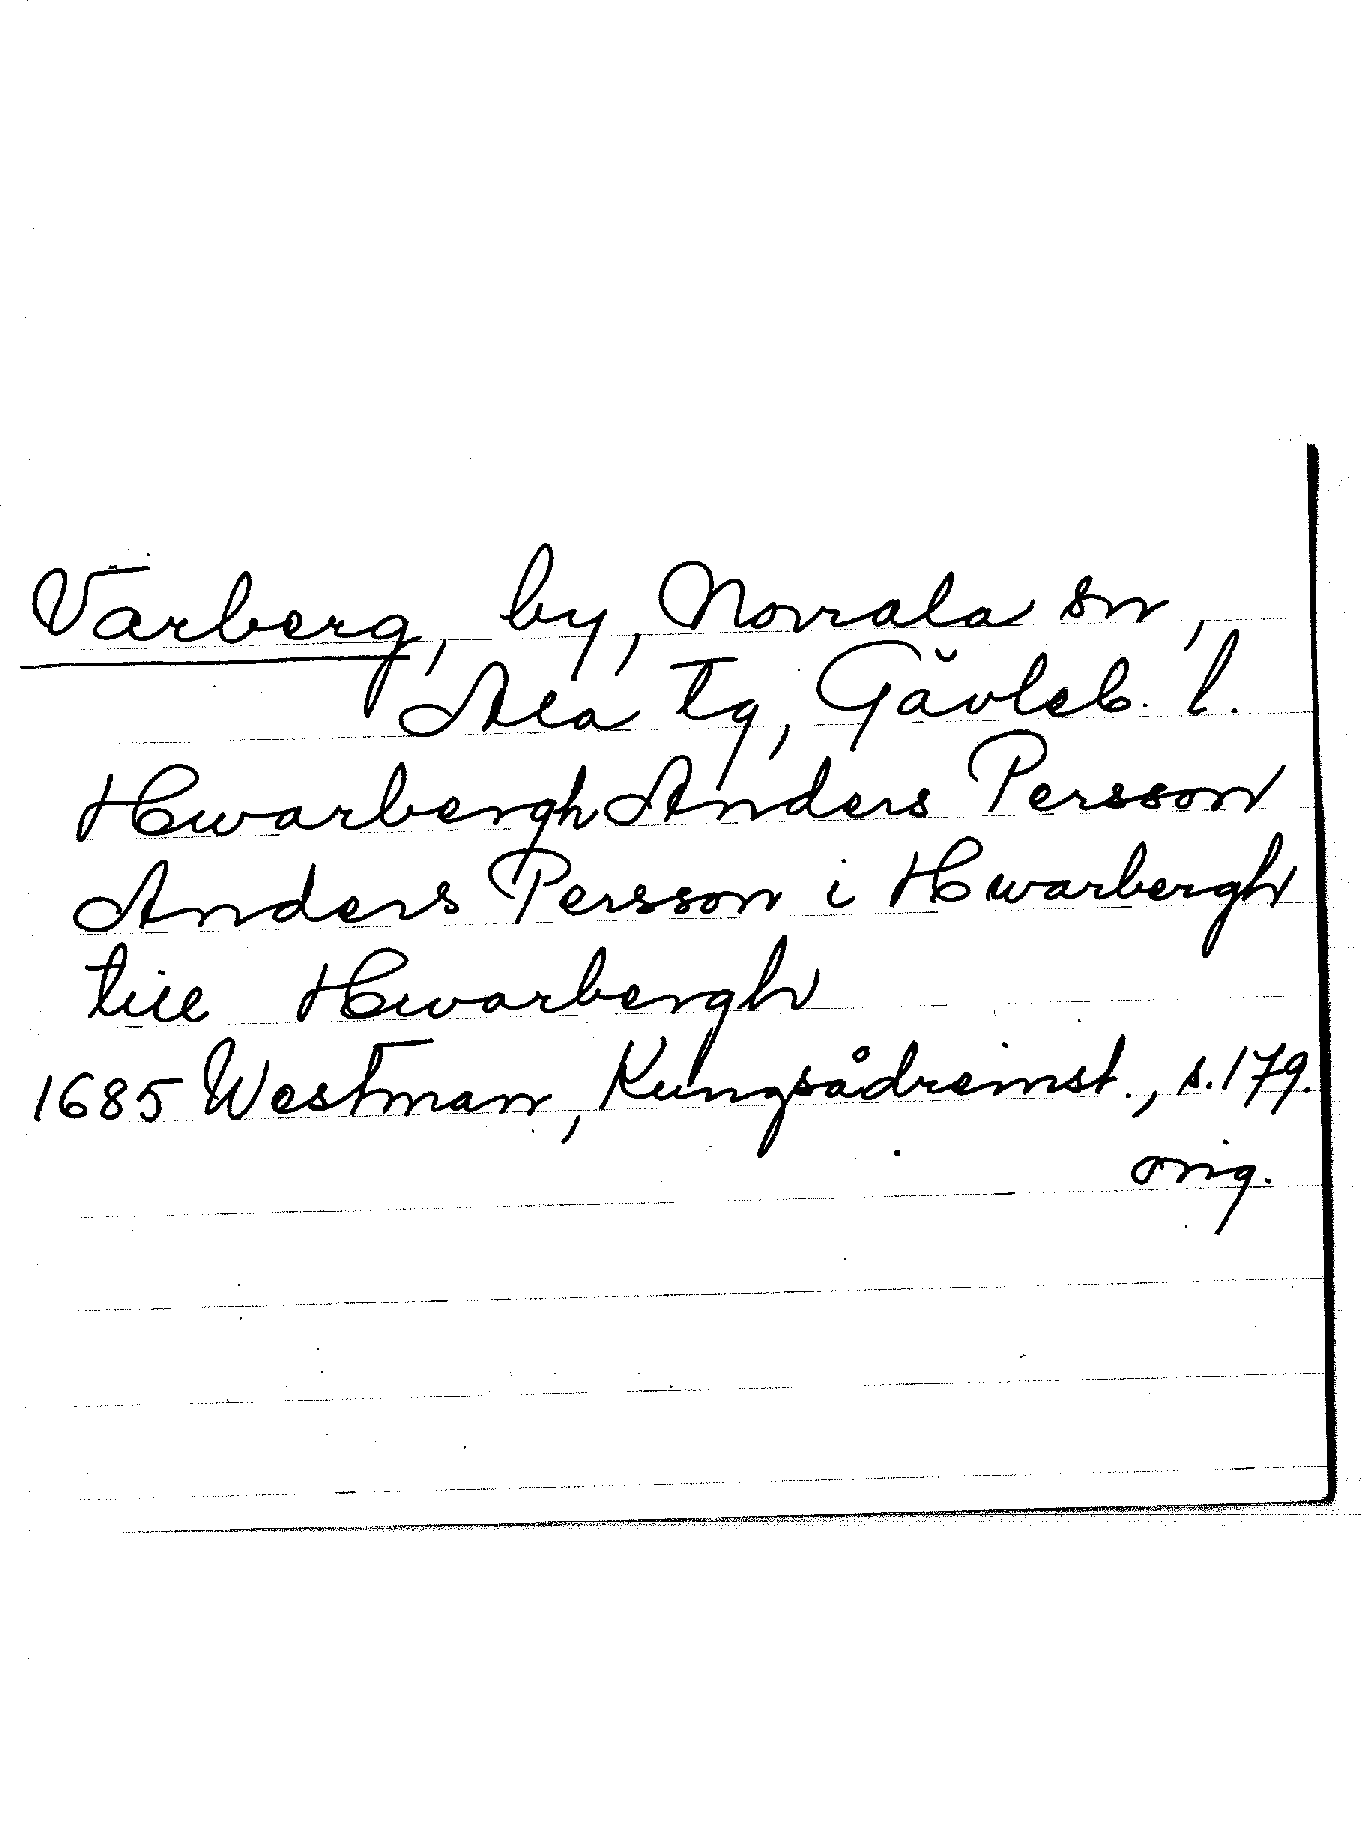 Varberg, by, Norrala sn,
Ala tg, Gävleb. l.
Hwarbergh Anders Persson
Anders Persson i Hwarbergh
till Hwarbergh
1685 Westman, Kungsådreinst., s. 179.
orig.